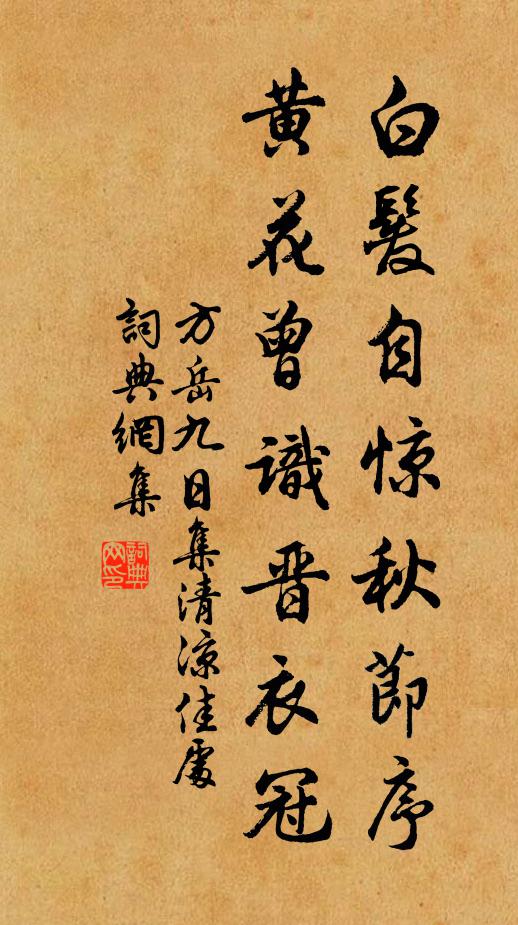 白髮自惊秋節序
黄花曾識晋衣冠
方岳九日集清凉佳處
詞典網集
詞典網印